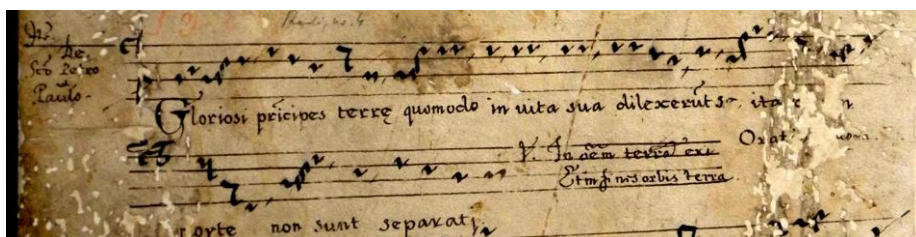 De
Scto Petro
Paulo.
Gloriosi príncipes terrę quomodo in uita sua dilexerūt se, ita
V. In oēm terrā exi
Et in fi nis orbis terra
orte non sunt separati.